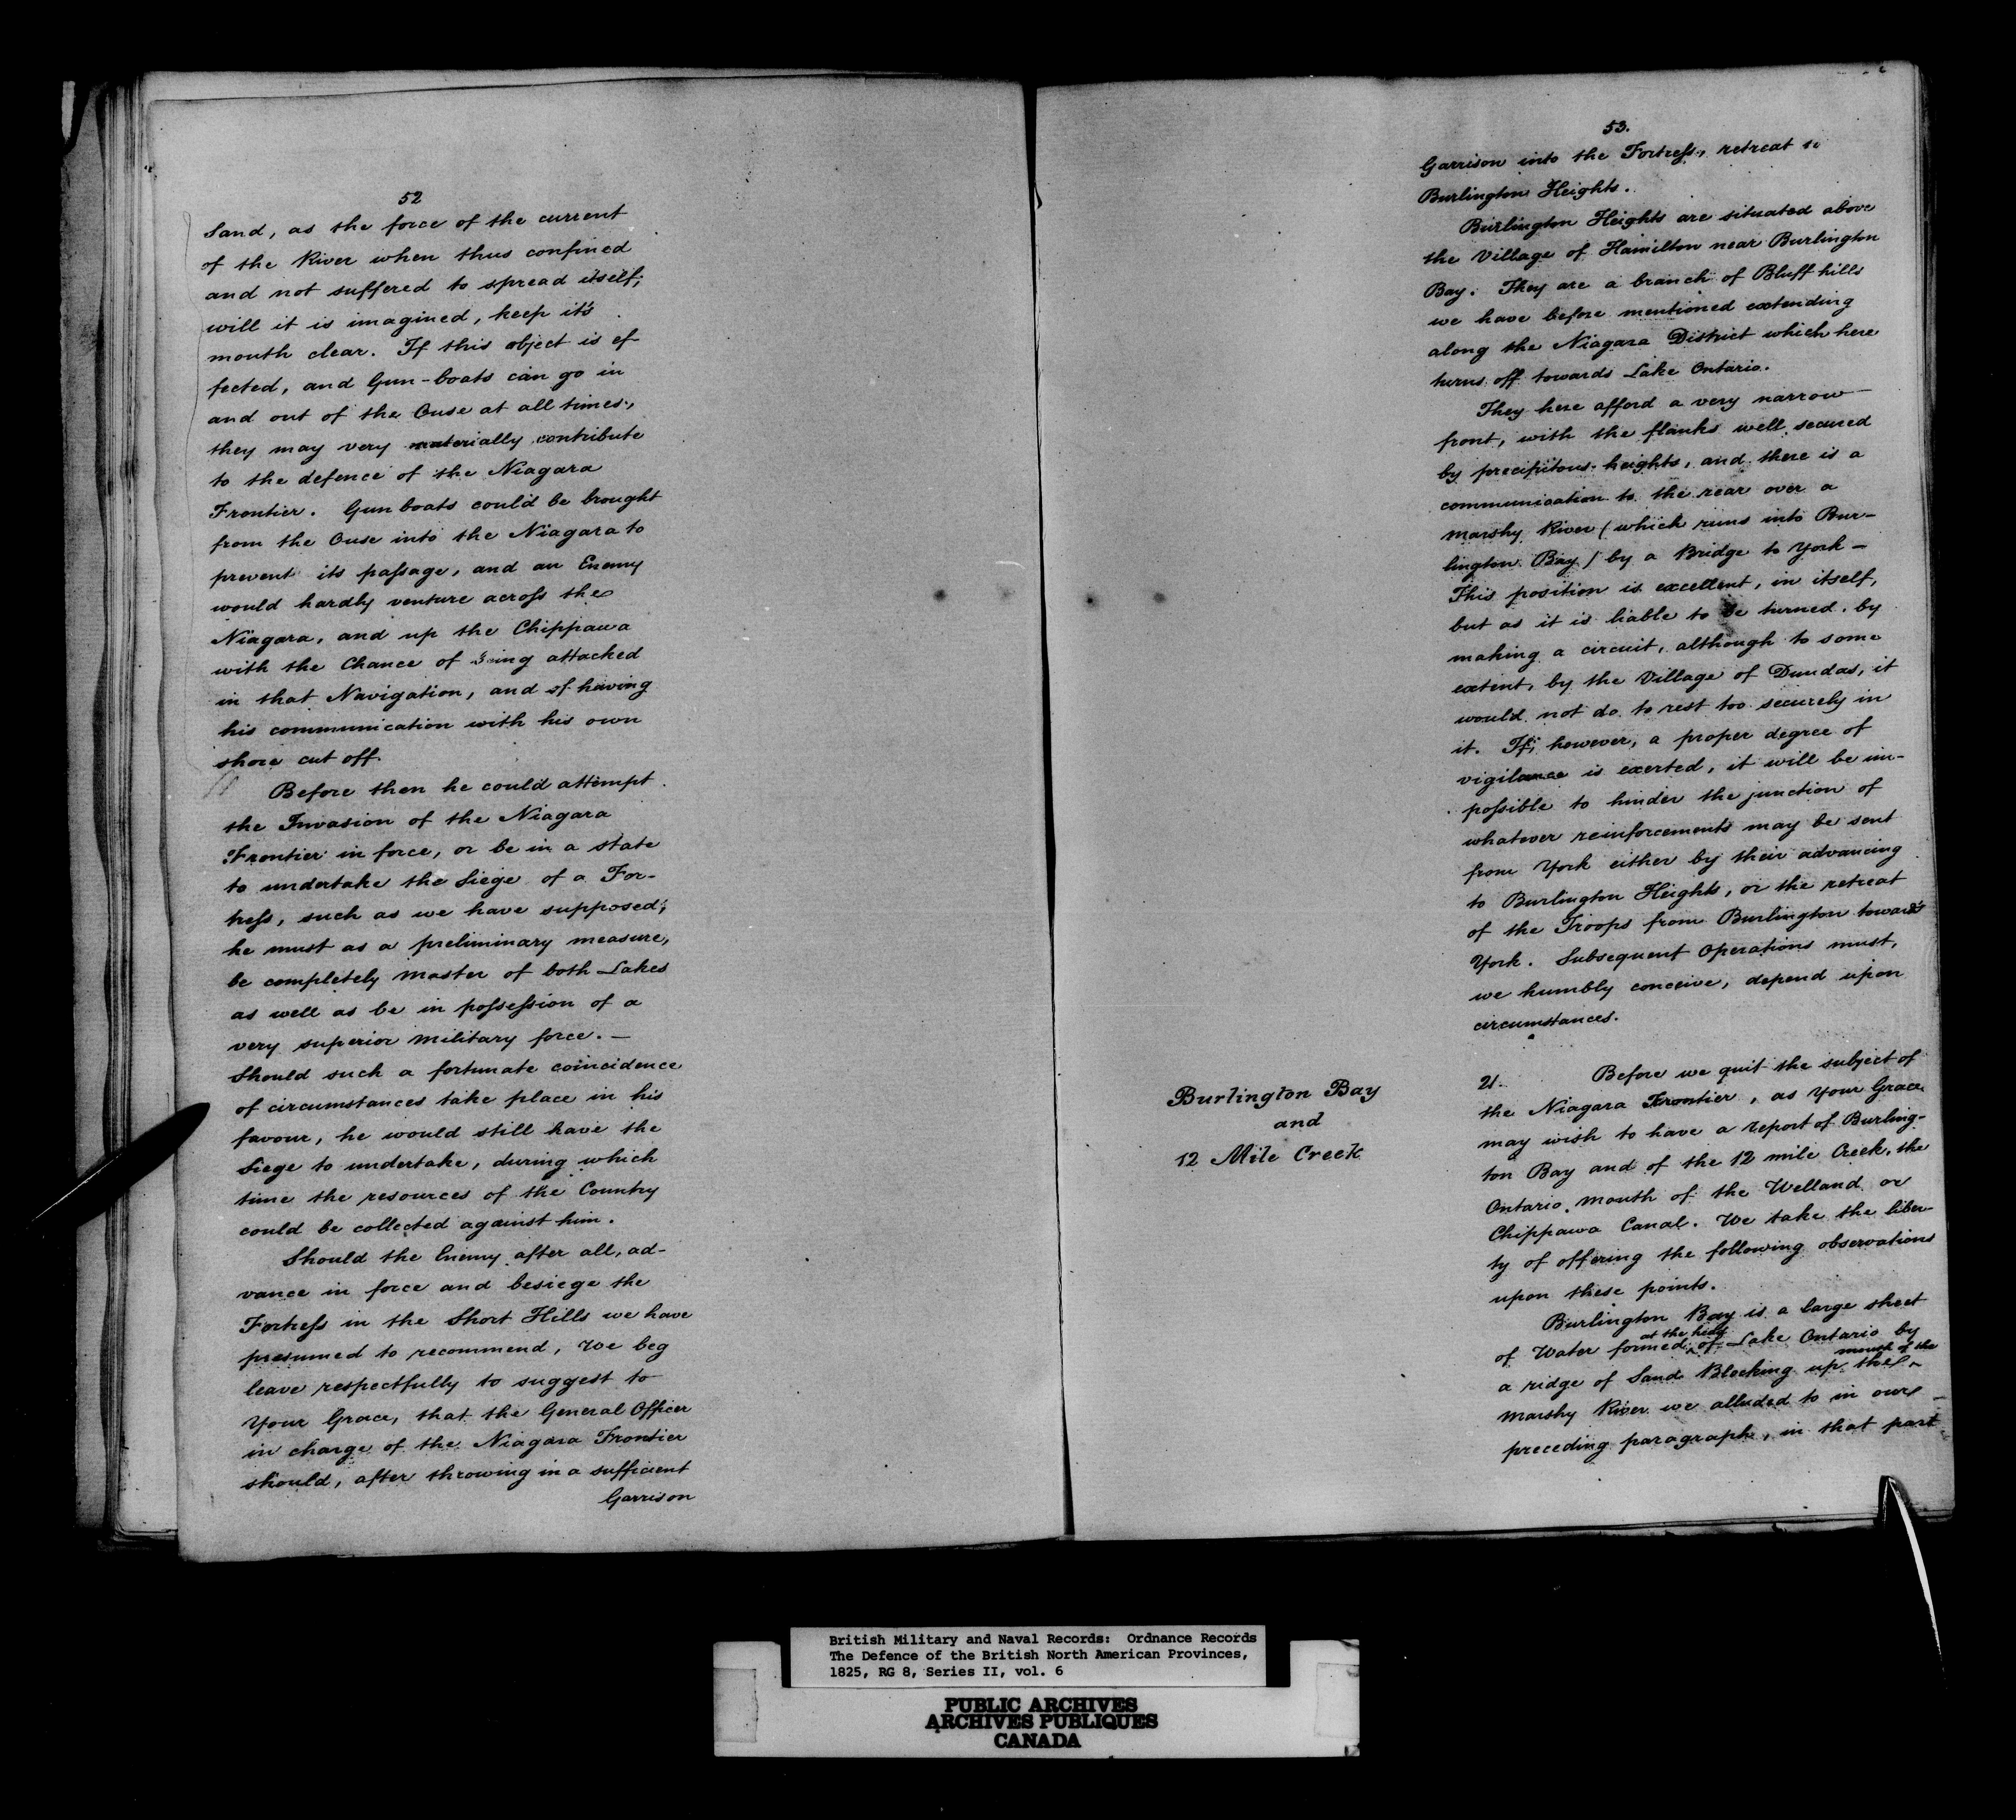 52
Sand, as the force of the current
of the River when thus confined
and not suffered to spread itself,
will it is imagined, keep it's
mouth clear. If this object is ef-
fected, and Gun-boats can go in
and out of the Ouse at all times,
they may very materially contribute
to the defence of the Niagara
Frontier. Gun boats could be brought
from the Ouse into the Niagara to
prevent its passage, and an Enemy
would hardly venture across the
Niagara, and up the Chippawa
with the Chance of being attacked
in that Navigation, and of having
his communication with his own
shore cut off.
Before then he could attempt
the Invasion of the Niagara
Frontier in force, or be in a state
to undertake the Siege of a For-
tress, such as we have supposed;
he must as a preliminary measure,
be completely master of both Lakes
as well as be in possession of a
very superior military force. —
Should such a fortunate coincidence
of circumstances take place in his
favour, he would still have the
Siege to undertake, during which
time the resources of the Country
could be collected against him.
Should the Enemy after all, ad-
vance in force and besiege the
Fortress in the Short Hills we have
presumed to recommend, We beg
leave respectfully to suggest to
Your Grace, that the General Officer
in charge of the Niagara Frontier
should, after throwing in a sufficient
Garrison
53.
Garrison into the Fortress, retreat to
Burlington Heights.
Burlington Heights are situated above
the Village of Hamilton near Burlington
Bay. They are a branch of Bluff hills
we have before mentioned extending
along the Niagara District which here
turns off towards Lake Ontario.
They here afford a very narrow
front, with the flanks well secured
by precipitous heights, and there is a
communication to the rear over a
marshy River (which runs into Bur-
lington Bay) by a Bridge to York —
This position is excellent, in itself,
but as it is liable to be turned, by
making a circuit, although to some
extent, by the Village of Dundas, it
would not do to rest too securely in
it. If, however, a proper degree of
vigilance is exerted, it will be im-
possible to hinder the junction of
whatever reinforcements may be sent
from York either by their advancing
to Burlington Heights, or the retreat
of the Troops from Burlington towards
York. Subsequent Operations must,
we humbly conceive, depend upon
circumstances.
Burlington Bay
and
12 Mile Creek
21. Before we quit the subject of
the Niagara Frontier, as Your Grace
may wish to have a report of Burling-
ton Bay and of the 12 mile Creek, the
Ontario mouth of the Welland or
Chippawa Canal. We take the liber-
ty of offering the following observations
upon these points.
Burlington Bay is a large sheet
of Water formed at the head of Lake Ontario by
a ridge of Sand Blocking up the mouth of the
marshy River we alluded to in our
preceding paragraph, in that part
British Military and Naval Records: Ordnance Records
The Defence of the British North American Provinces,
1825, RG 8, Series II, vol. 6
PUBLIC ARCHIVES
ARCHIVES PUBLIQUES
CANADA